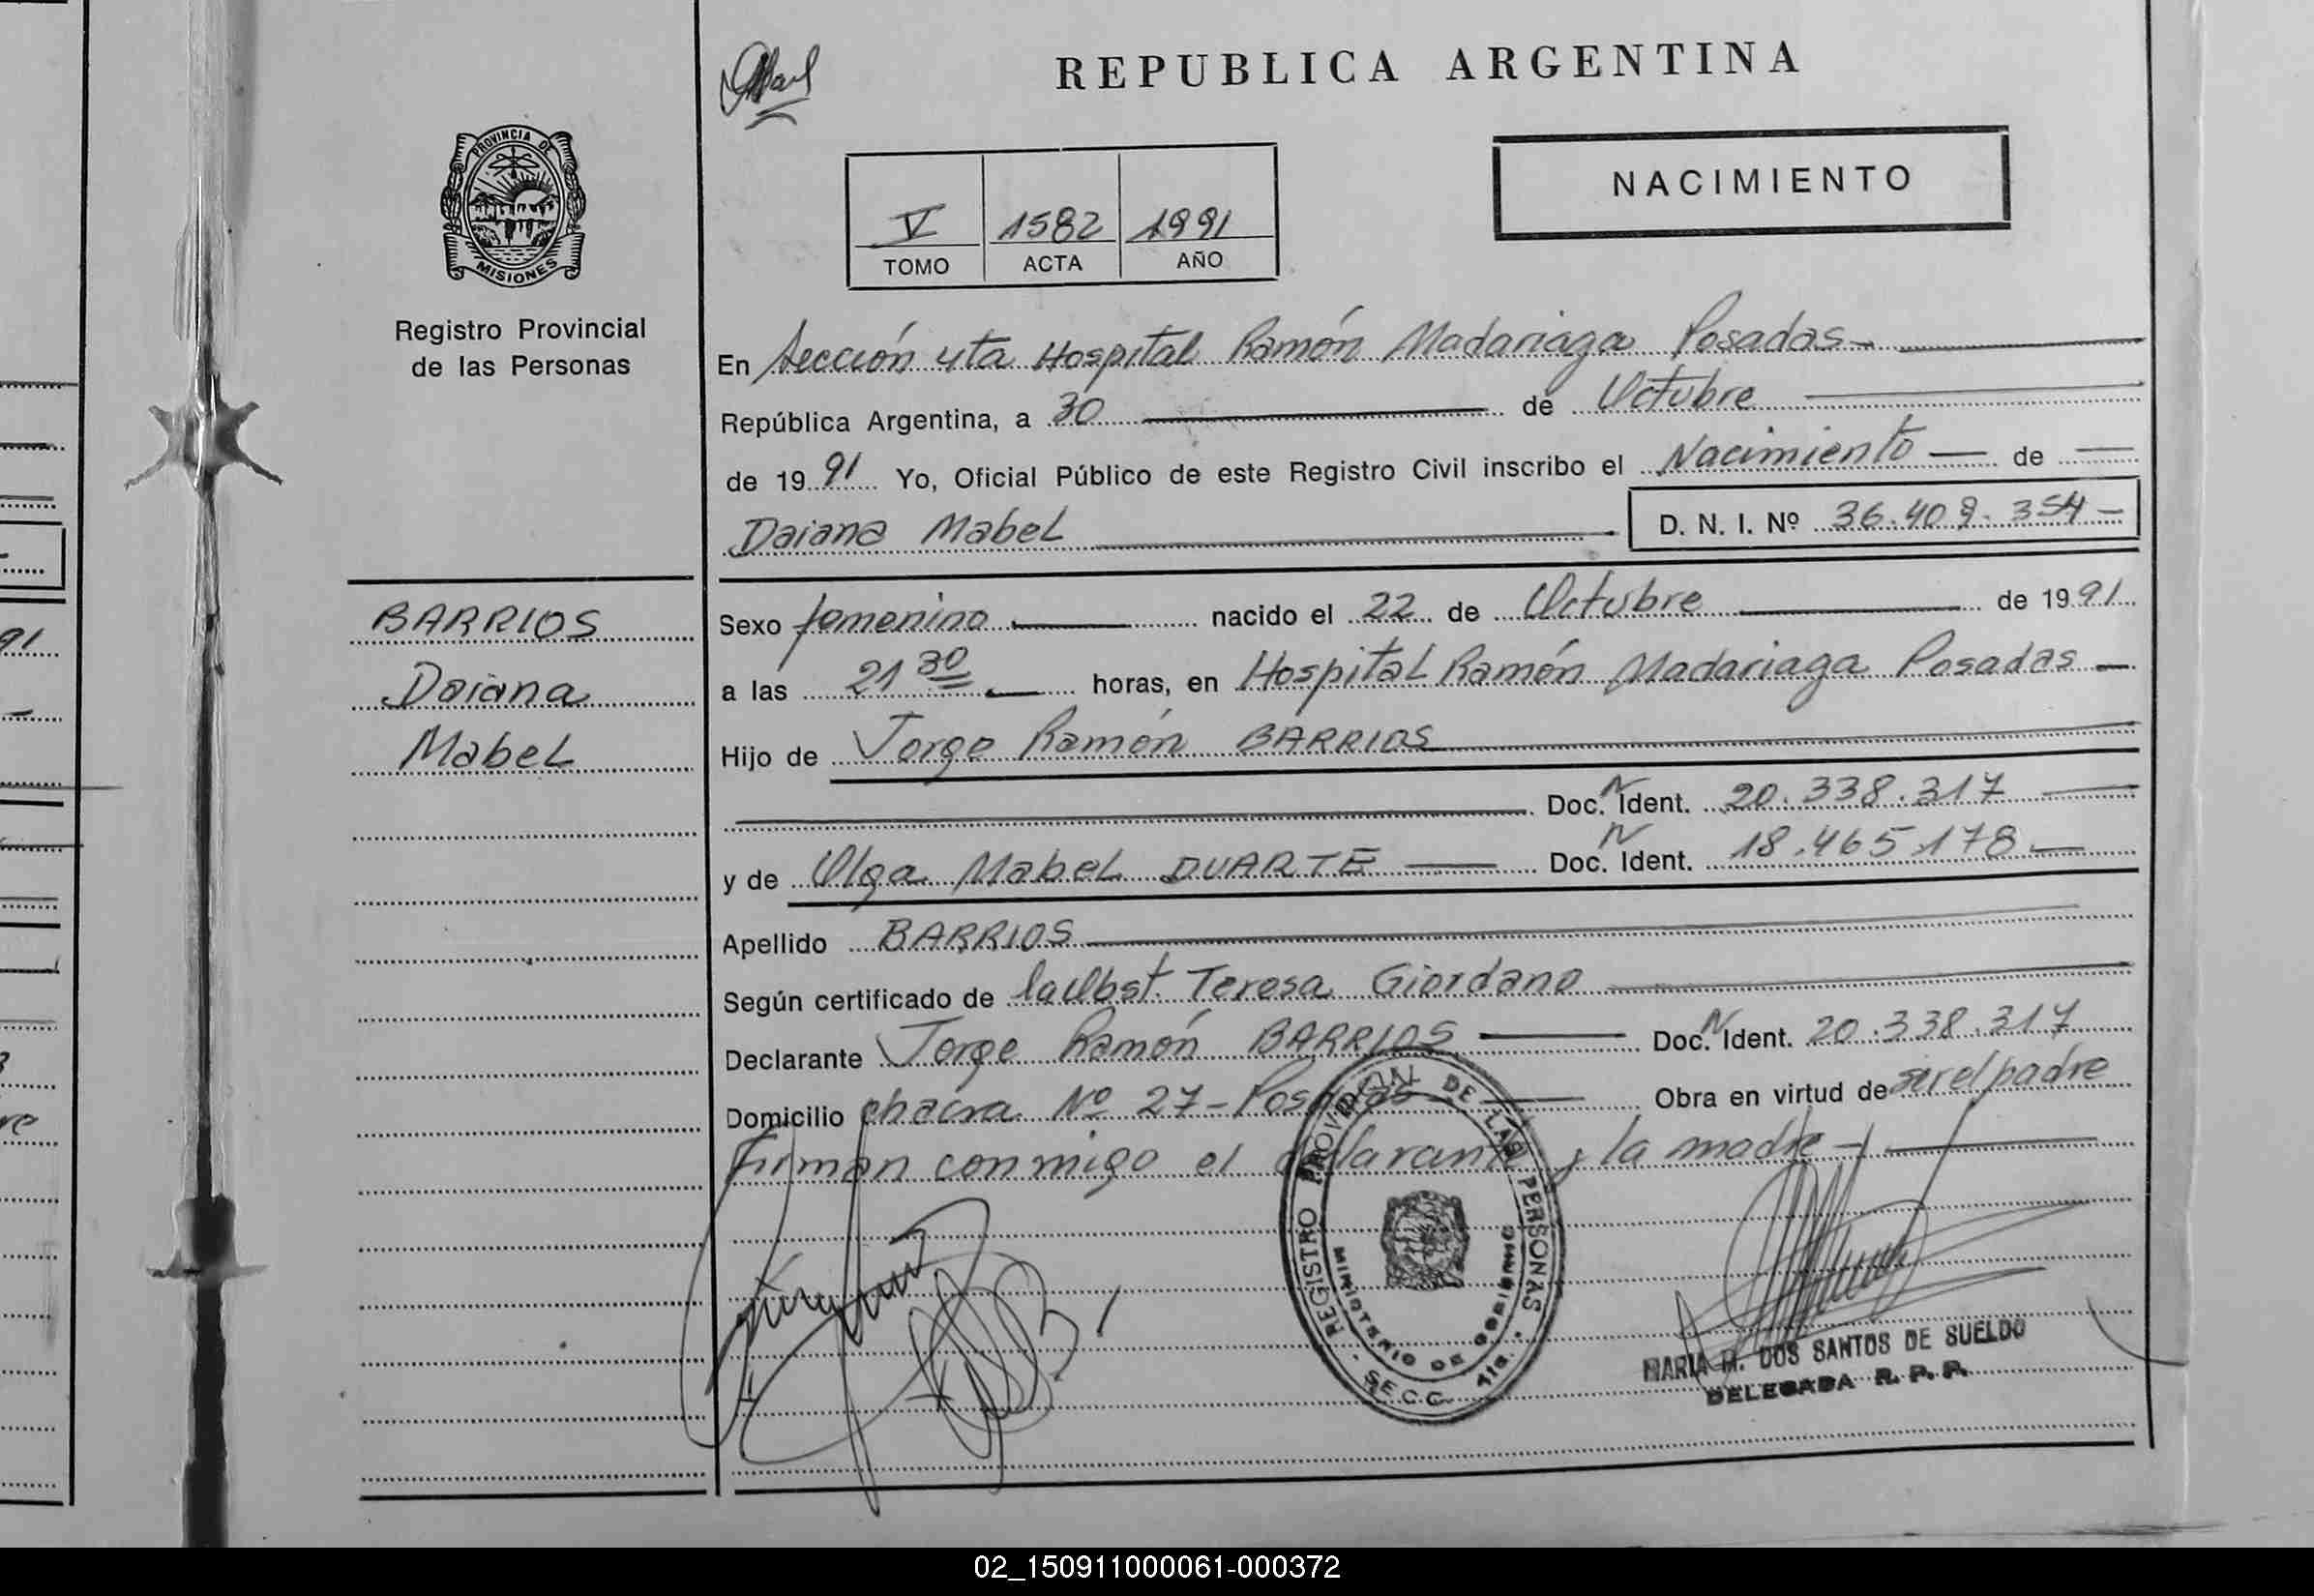 REPUBLICA ARGENTINA
NACIMIENTO
V 1582 1991
TOMO ACTA AÑO
PROVINCIA DE
MISIONES
Registro Provincial
de las Personas
BARRIOS
Daiana
Mabel
En Sección 4ta Hospital Ramón Madariaga Posadas
República Argentina, a 30 de Octubre
de 1991 Yo, Oficial Público de este Registro Civil inscribo el Nacimiento de
Daiana Mabel D. N. I. Nº 36.409.354
Sexo femenino nacido el 22 de Octubre de 1991
a las 21 30 horas, en Hospital Ramón Madariaga Posadas
Hijo de Jorge Ramón BARRIOS
Doc. N Ident. 20.338.317
y de Olga Mabel DUARTE Doc. N Ident. 18.465.178
Apellido BARRIOS
Según certificado de la Obst. Teresa Giordano
Declarante Jorge Ramón BARRIOS Doc. N Ident. 20.338.317
Domicilio chacra Nº 27 - Posadas Obra en virtud de ser el padre
Firman conmigo el declarante y la madre
REGISTRO PROVINCIAL DE LAS PERSONAS
MINISTERIO DE GOBIERNO
SECC. 4ta.
MARIA M. DOS SANTOS DE SUELDO
DELEGADA R. P. P.
02_150911000061-000372